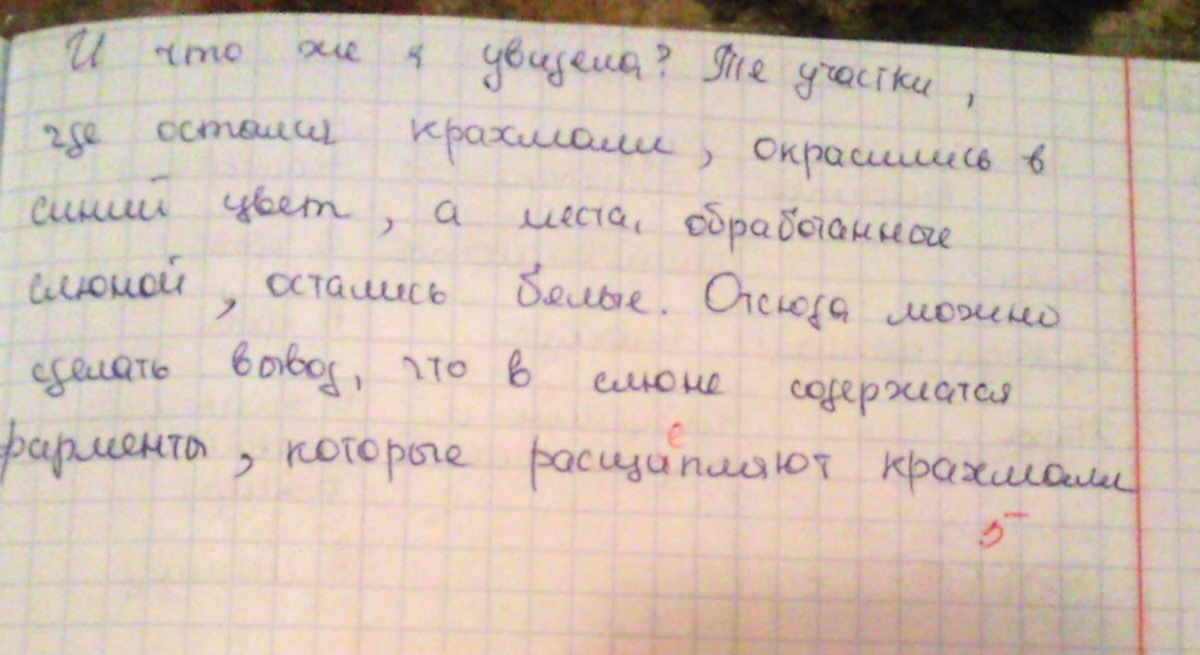 И что же я увидела? Те участки,
где остались крахмалы, окрасились в
синий цвет, а места, обработанные
слюной, остались белые. Отсюда можно
сделать вывод, что в слюне содержатся
фарменты, которые расщипляют крахмалы
е
5-